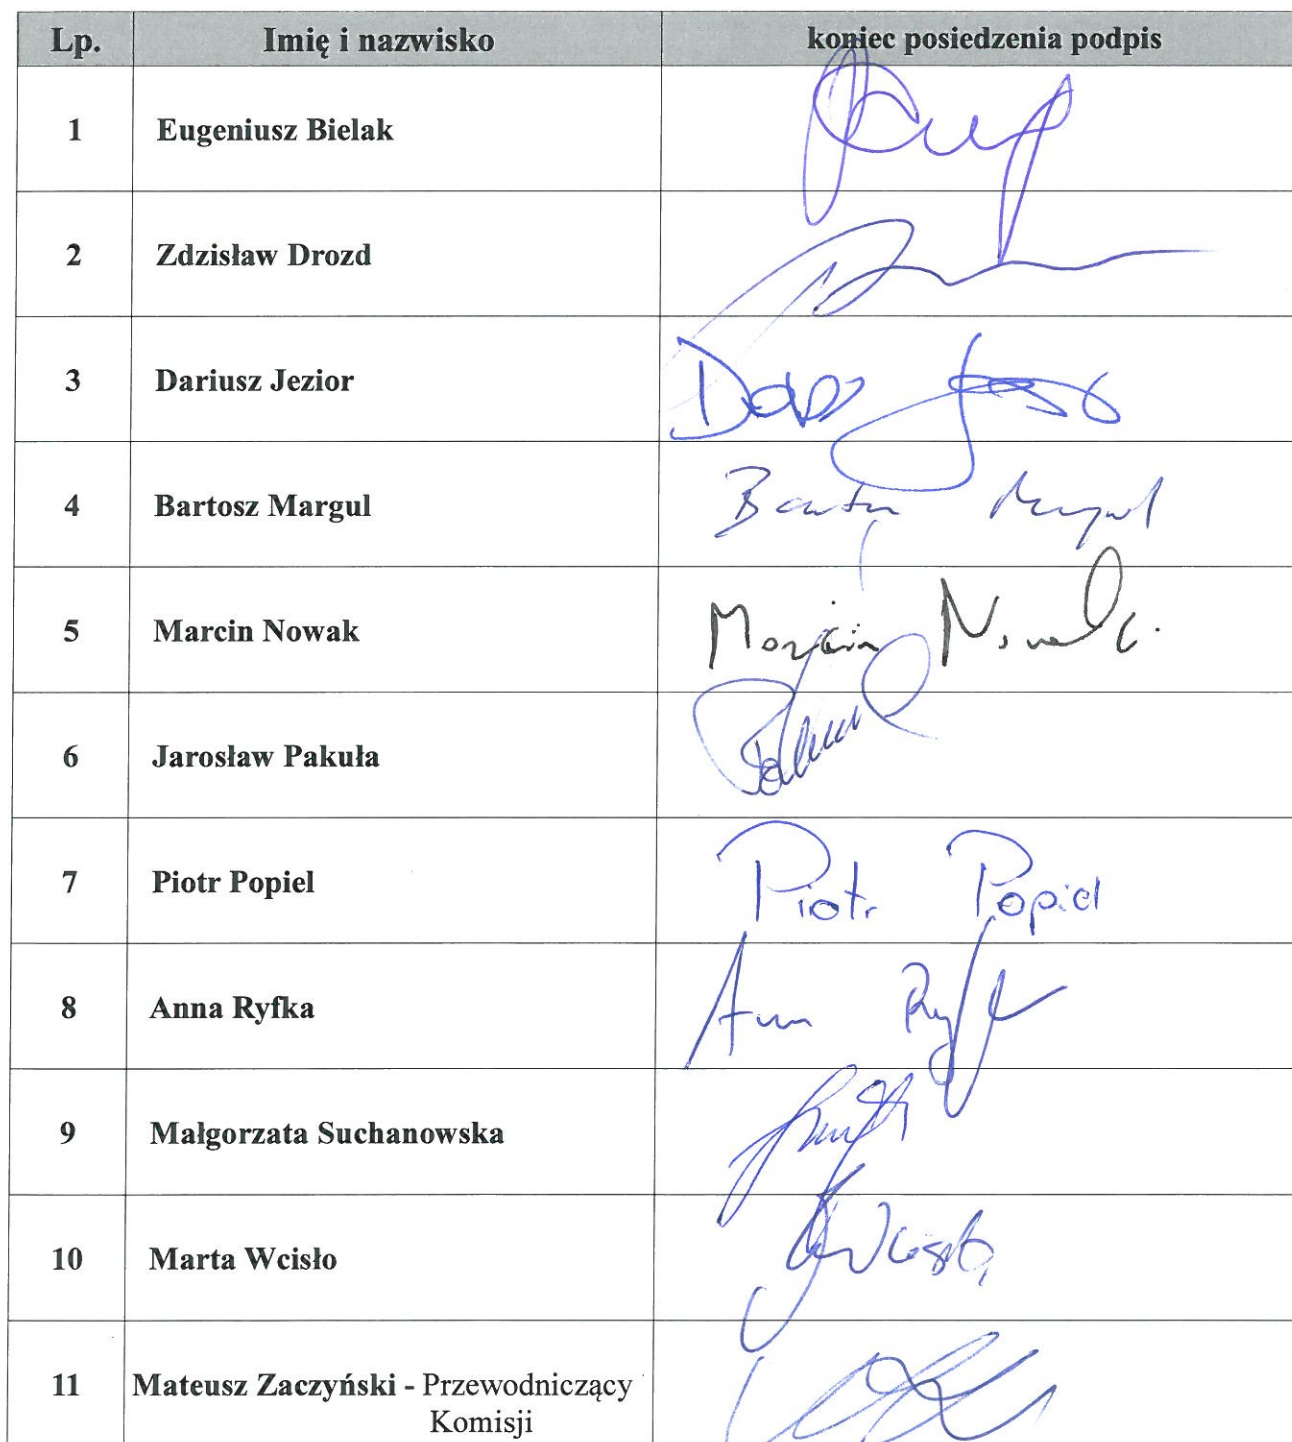 Lp. Imię i nazwisko koniec posiedzenia podpis
1 Eugeniusz Bielak
2 Zdzisław Drozd
3 Dariusz Jezior
4 Bartosz Margul
5 Marcin Nowak Marcin Nowak.
6 Jarosław Pakuła
7 Piotr Popiel Piotr Popiel
8 Anna Ryfka
9 Małgorzata Suchanowska
10 Marta Wcisło
11 Mateusz Zaczyński - Przewodniczący
Komisji